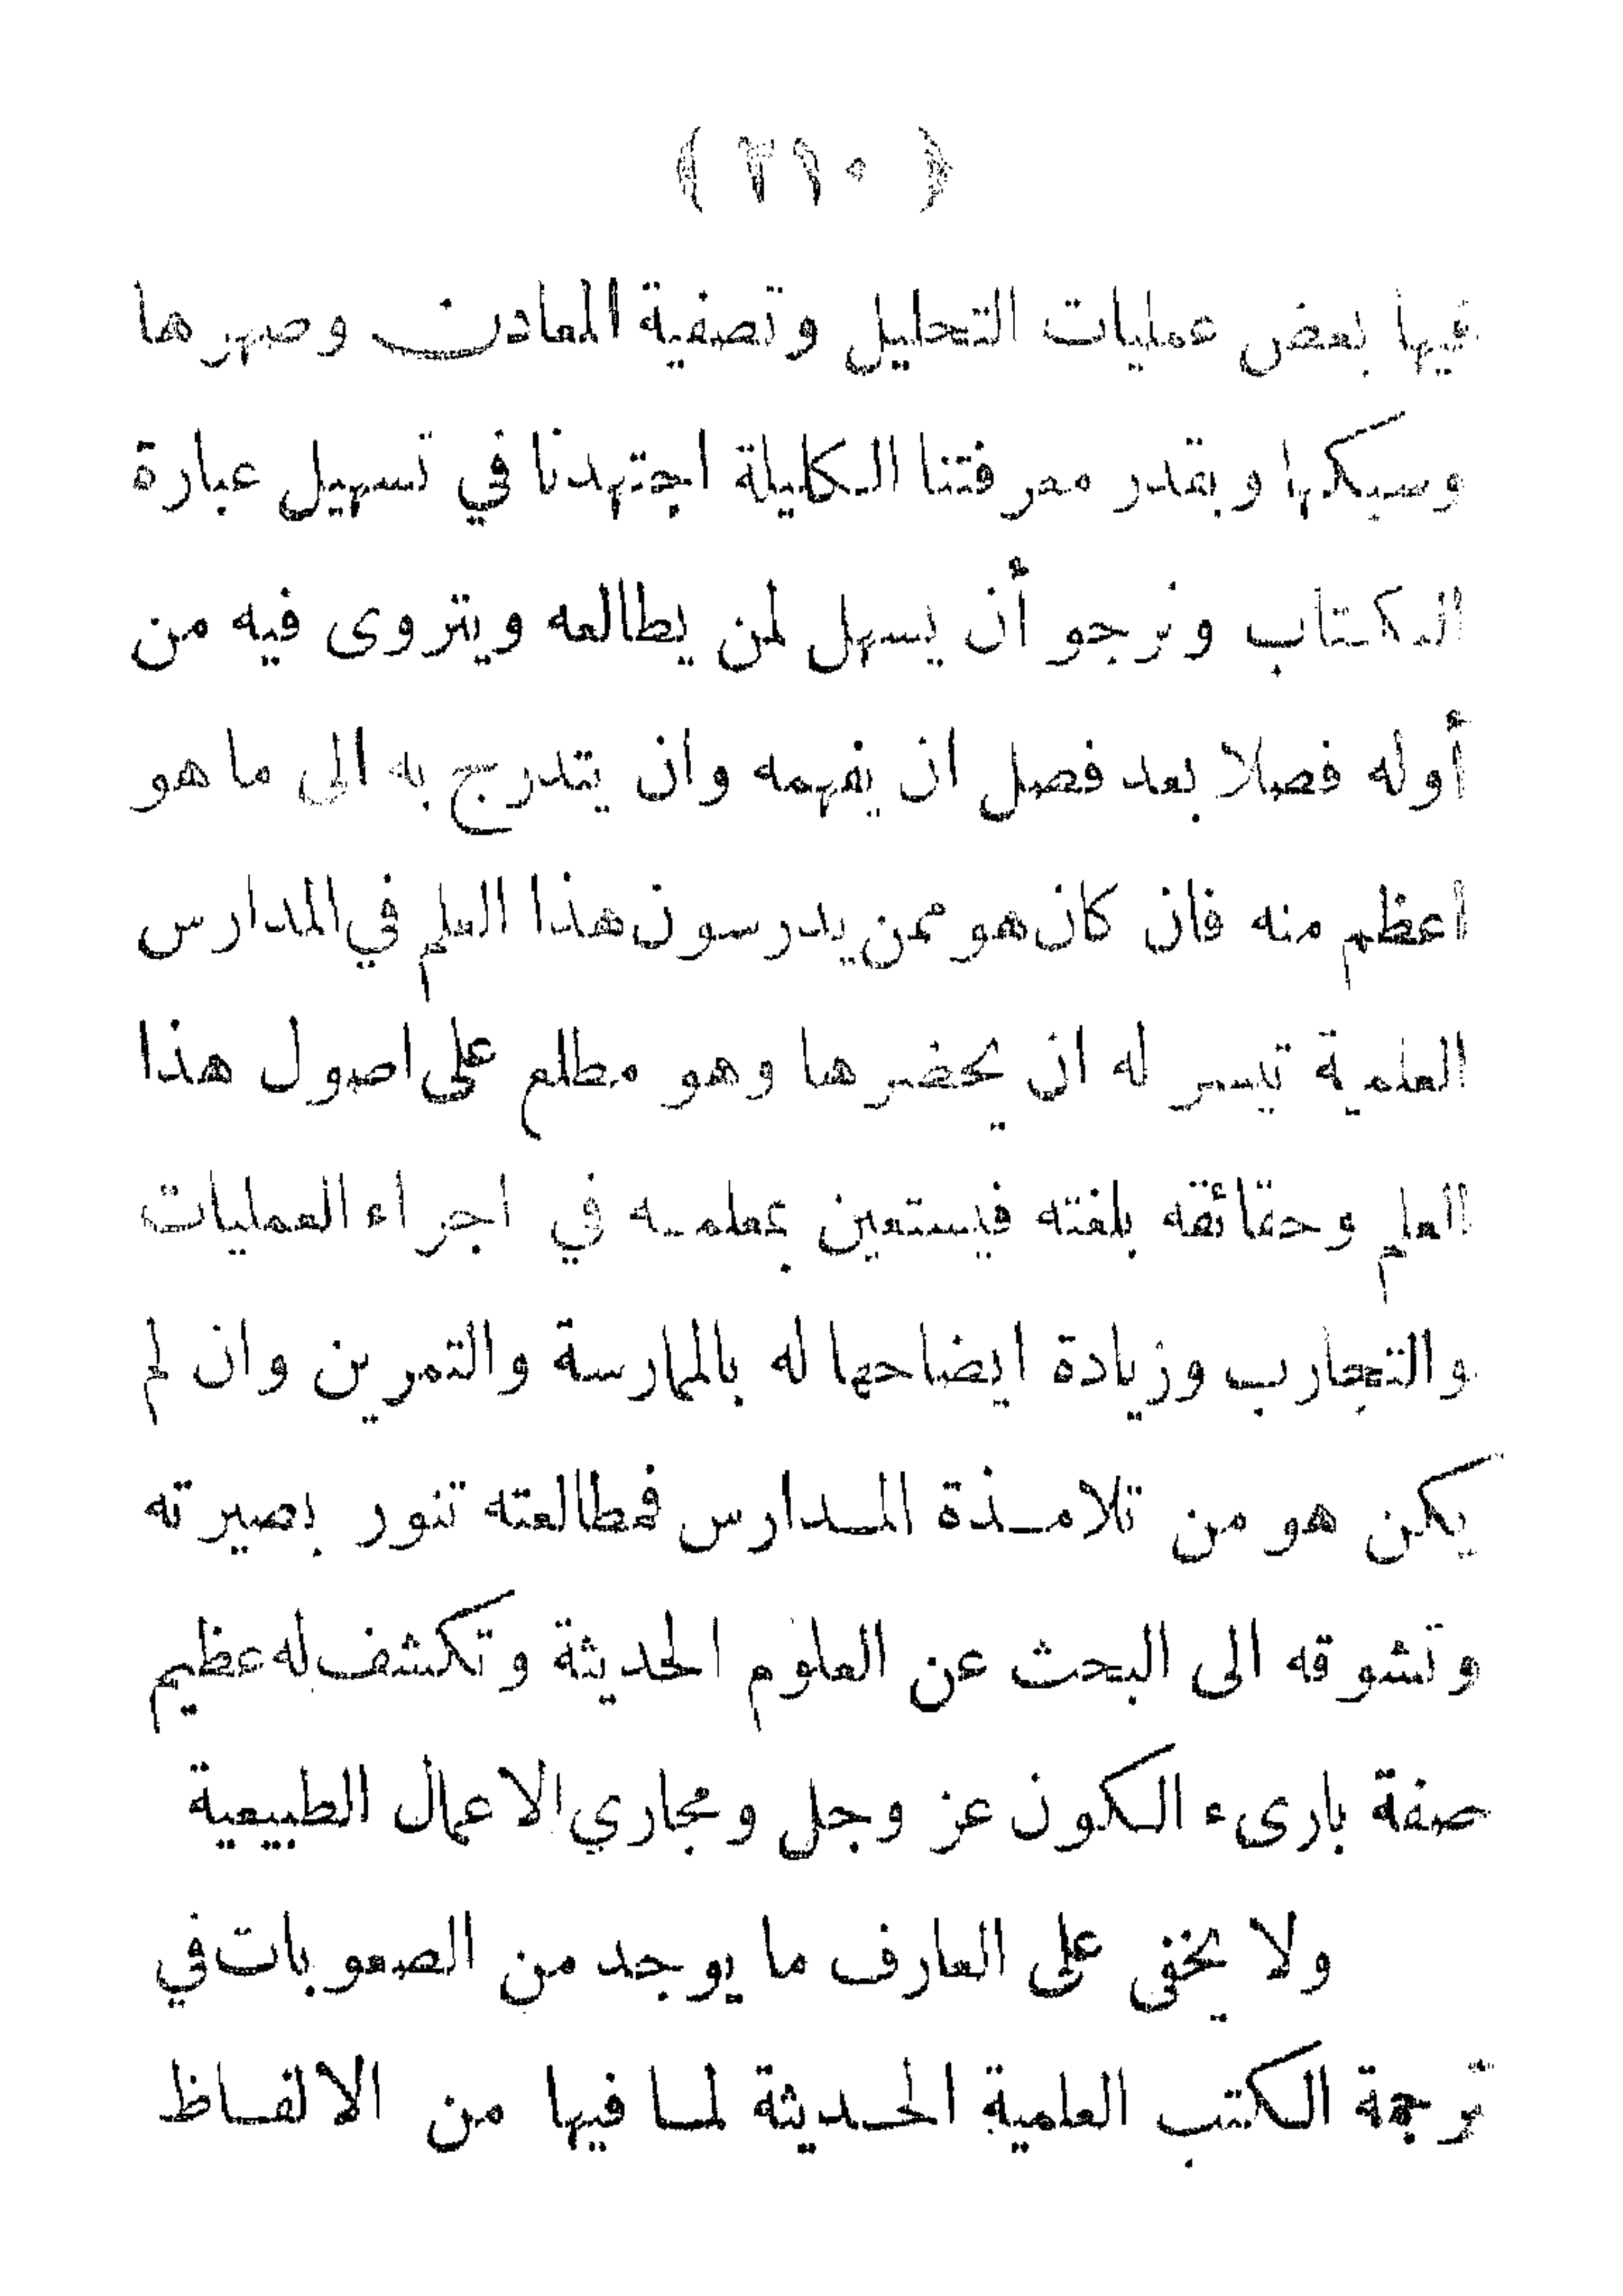 ( ٢١٠ )
فيها بعض عمليات التحليل وتصفية المعادن وصهرها
وسبكها وبقدر معرفتنا الكليلة اجتهدنا في تسهيل عبارة
الكتاب ونرجو أن يسهل لمن يطالعه ويتروى فيه من
أوله فصلا بعد فصل ان يفهمه وان يتدرج به الى ما هو
اعظم منه فان كان هو ممن يدرسون هذا العلم في المدارس
العلمية تيسر له ان يحضرها وهو مطلع على اصول هذا
العلم وحقائقه بلغته فيستعين بعلمه في اجراء العمليات
والتجارب وزيادة ايضاحها له بالممارسة والتمرين وان لم
يكن هو من تلامذة المدارس فمطالعته تنور بصيرته
وتشوقه الى البحث عن العلوم الحديثة وتكشف له عظيم
صفة بارىء الكون عز وجل ومجاري الاعمال الطبيعية
ولا يخفى على العارف ما يوجد من الصعوبات في
ترجمة الكتب العلمية الحديثة لما فيها من الالفاظ